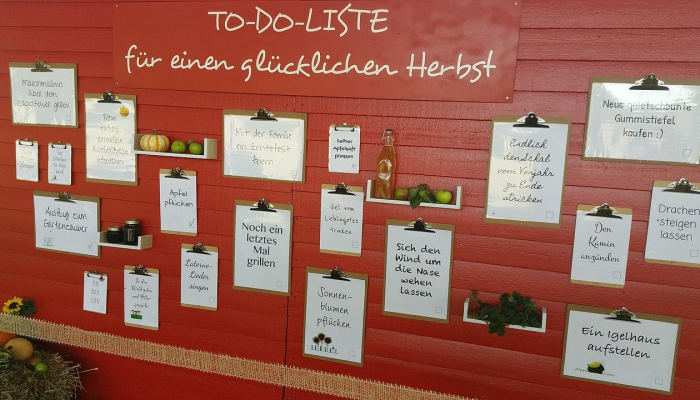 TO-DO-LISTE
für einen glücklichen Herbst
Marshmallows
über dem
Lagerfeuer grillen
Eine
Mit der Familie
ein Erntefest
feiern
Selber
Apfelsaft
pressen
Endlich
den Schal
vom Vorjahr
zu Ende
stricken
Neue quietschbunte
Gummistiefel
kaufen :)
Apfel
pflücken
Ausflug zum
Gartenzauber
Noch ein
letztes
Mal
grillen
Viel vom
Lieblingstee
trinken
Sich den
Wind um
die Nase
wehen
lassen
Den
Kamin
anzünden
Drachen
steigen
lassen
Laterne-
Lieder
singen
Sonnen-
blumen
pflücken
Ein Igelhaus
aufstellen